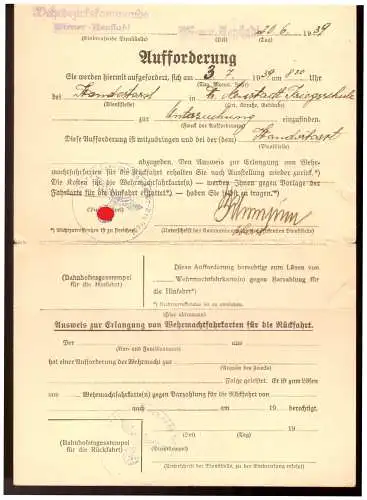 Wehrbezirkskommando
Wiener-Neustadt
(Einberufende Dienststelle) (Ort) 20. 6. 1939 (Tag)
Aufforderung
Sie werden hiermit aufgefordert, sich am 3. 7. 1939 um 8 00 Uhr
(Tag, Monat, Jahr)
bei Standortarzt in W. Neustadt
(Dienststelle) (Ort, Straße, Gebäude)
zur Untersuchung einzufinden.
(Zweck der Aufforderung)
Diese Aufforderung ist mitzubringen und bei der (dem) Standortarzt
(Dienststelle)
abzugeben. Den Ausweis zur Erlangung von Wehr-
machtfahrkarten für die Rückfahrt erhalten Sie nach Ausstellung wieder zurück. *)
Die Kosten für die Wehrmachtfahrkarte(n) — werden Ihnen gegen Vorlage der
Fahrkarte für die Hinfahrt erstattet.*) — haben Sie selbst zu tragen.*)
*) Nichtzutreffendes ist zu streichen.
(Bahnhofstagesstempel
für die Hinfahrt)
Diese Aufforderung berechtigt zum Lösen von
Wehrmachtfahrkarte(n) gegen Barzahlung für
die Hinfahrt*)
*) Nichtzutreffendes ist zu streichen.
(Hier abtrennen)
Ausweis zur Erlangung von Wehrmachtfahrkarten für die Rückfahrt.
Der aus
(Vor- und Familienname)
hat einer Aufforderung der Wehrmacht zur
(Angabe des Zwecks)
Folge geleistet. Er ist zum Lösen
von Wehrmachtfahrkarte(n) gegen Barzahlung für die Rückfahrt von
nach am 19 berechtigt.
, 19
(Ort) (Tag)
(Bahnhofstagesstempel
für die Rückfahrt)
(Dienststempel)
(Unterschrift der Dienststelle, zu der Einberufung erfolgt)